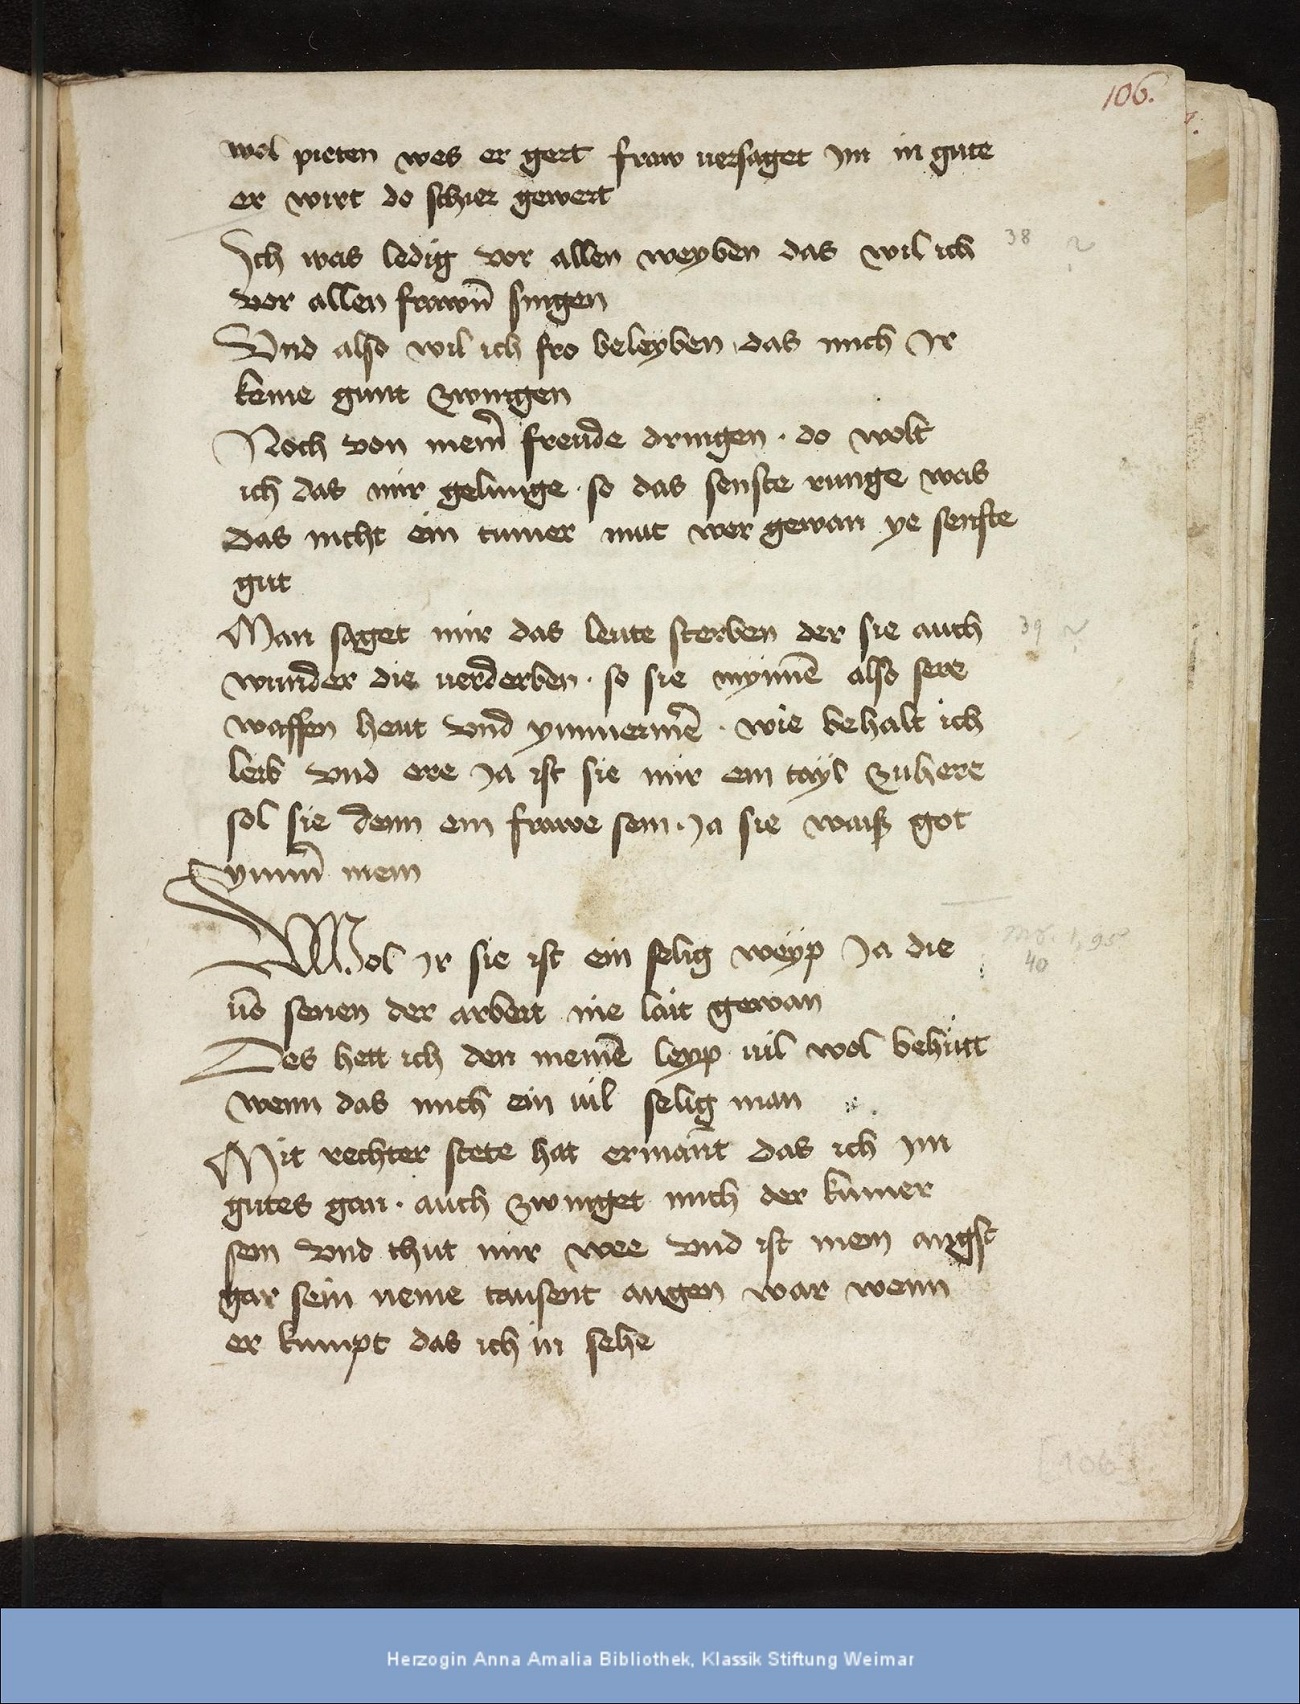 106.
wol pieten wes er gert fraw uersaget im in gute
er wirt do schier gewert
Ich was ledig vor allen weyben das wil ich
38
vor allen frawñ singen
Vnd also wil ich fro beleyben das mich Ir
keine gunt zwingen
Noch von meim̃ freude dringen · do wolt
ich das mir gelunge · so das senfte runge was
das nicht ein tumer mut wer gewan ye senfte
gut
Man saget mir das leute sterben der sie auch
39
wunder die uerderben · so sie mynnē also sere
waffen heut vnd ymmermē · wie behalt ich
leib vnd ere Ja ist sie mir ein tayl zuhere
sol sie denn ein frawe sein · Ja sie waiß got
ymm̃ mein
Wol Ir sie ist ein selig weyp Ja die
Mf. 1, 95
40
üō senen der arbeit nie lait gewan
Des hett ich den meinē leyp uil wol behütt
wenn das mich ein uil selig man
Mit rechter stete hat ermant das ich im
gutes gan · auch zwinget mich der kumer
sein vnd thut mir wee vnd ist mein angst
gar sein neme tausent augen war wenn
er kumpt das ich in sehe
[106]
Herzogin Anna Amalia Bibliothek, Klassik Stiftung Weimar